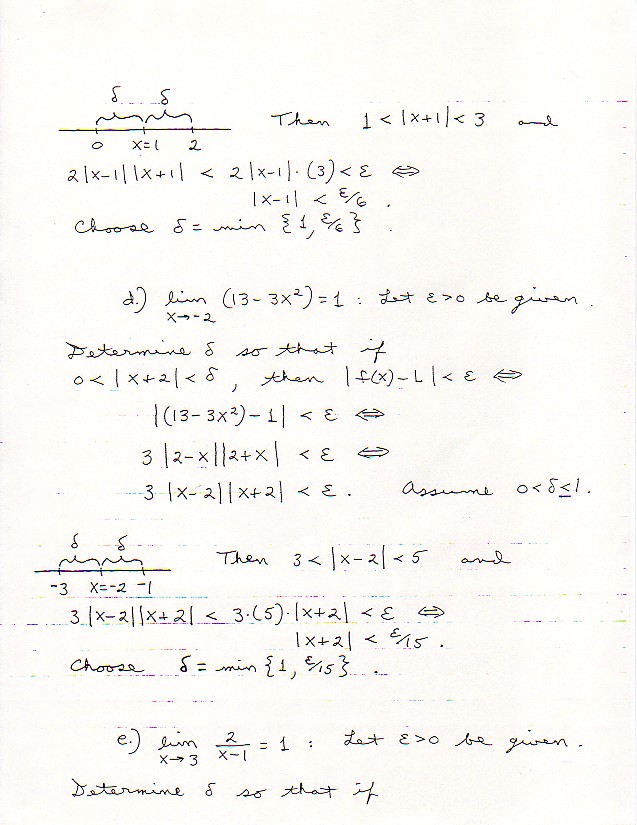 δ δ
Then 1 < |x+1| < 3 and
0 x=1 2
2|x-1||x+1| < 2|x-1|·(3) < ε ⇔
|x-1| < ε/6 .
Choose δ = min {1, ε/6} .
d.) lim (13-3x²) = 1 : Let ε>0 be given .
x→-2
Determine δ so that if
0 < |x+2| < δ , then |f(x)-L| < ε ⇔
|(13-3x²)-1| < ε ⇔
3 |2-x||2+x| < ε ⇔
3 |x-2||x+2| < ε . Assume 0<δ≤1.
δ δ
Then 3 < |x-2| < 5 and
-3 x=-2 -1
3 |x-2||x+2| < 3·(5)·|x+2| < ε ⇔
|x+2| < ε/15 .
Choose δ = min {1, ε/15} .
e.) lim 2/(x-1) = 1 : Let ε>0 be given .
x→3
Determine δ so that if